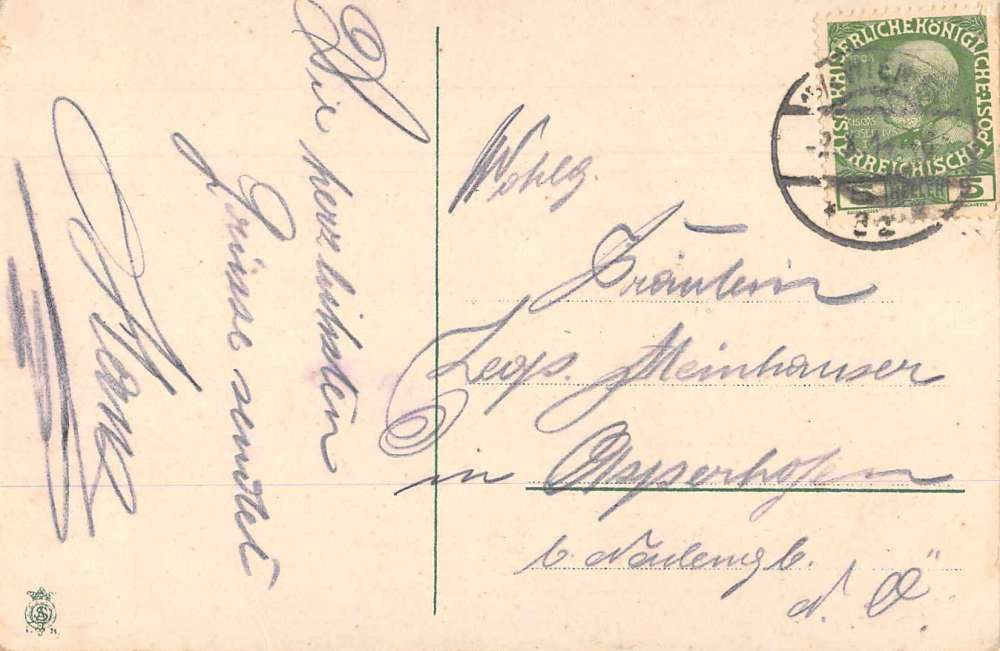 Die herzlichsten
Grüsse sendet
Wohlg.
Fräulein
Leop. Steinhauser
in Asperhofen
b. Neulengb.
N. Ö.
KAISERLICHE KÖNIGLICHE
ÖSTERREICHISCHE POST
5 HELLER 5